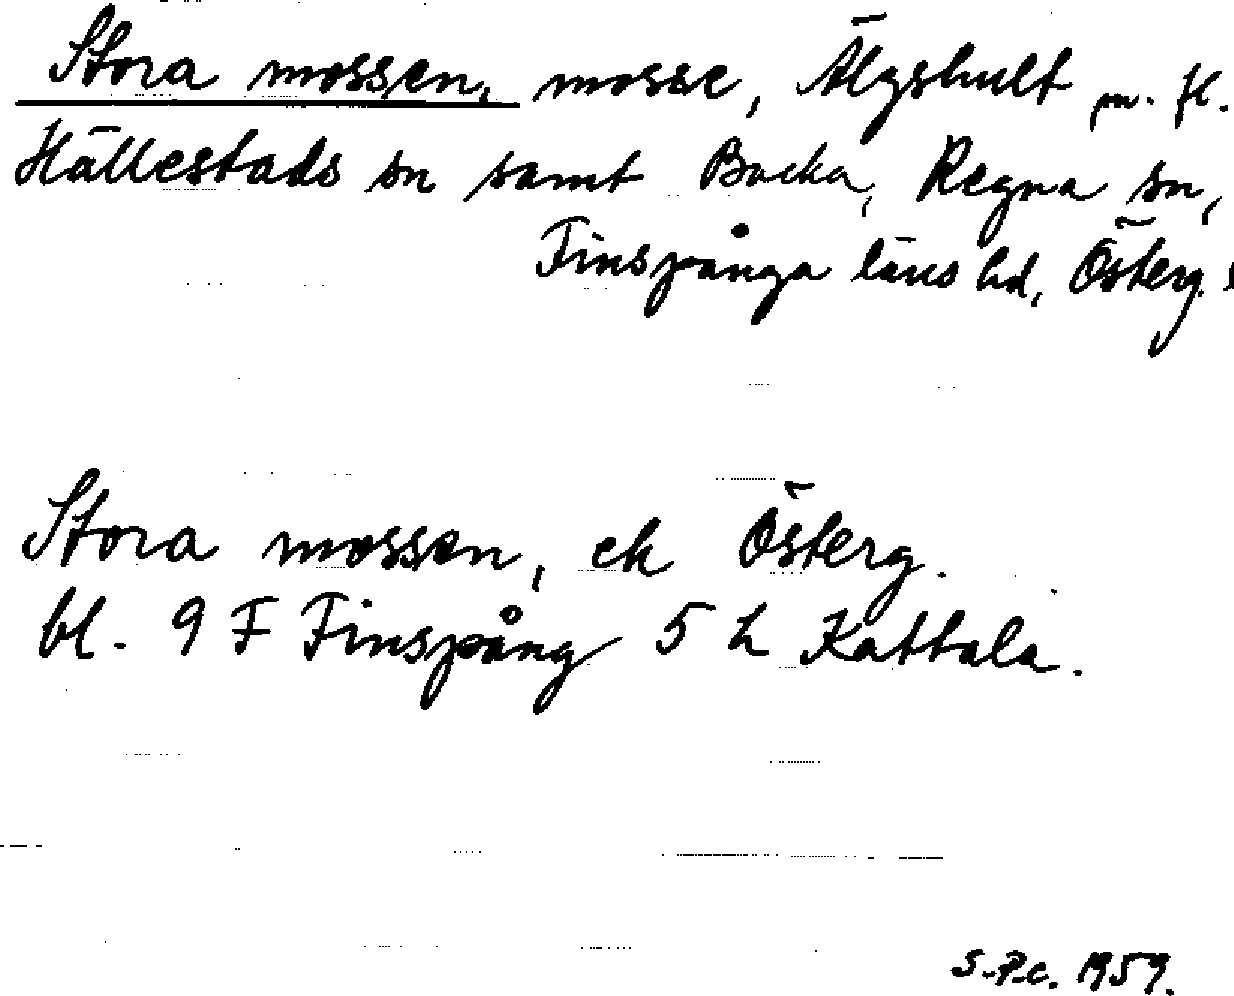 Stora mossen, mosse, Älgshult m. fl.
Hällestads sn samt Backa, Regna sn,
Finspånga läns hd, Österg.
Stora mossen, ek Österg.
bl. 9 F Finspång 5 h Kattala.
S.P.C. 1959.